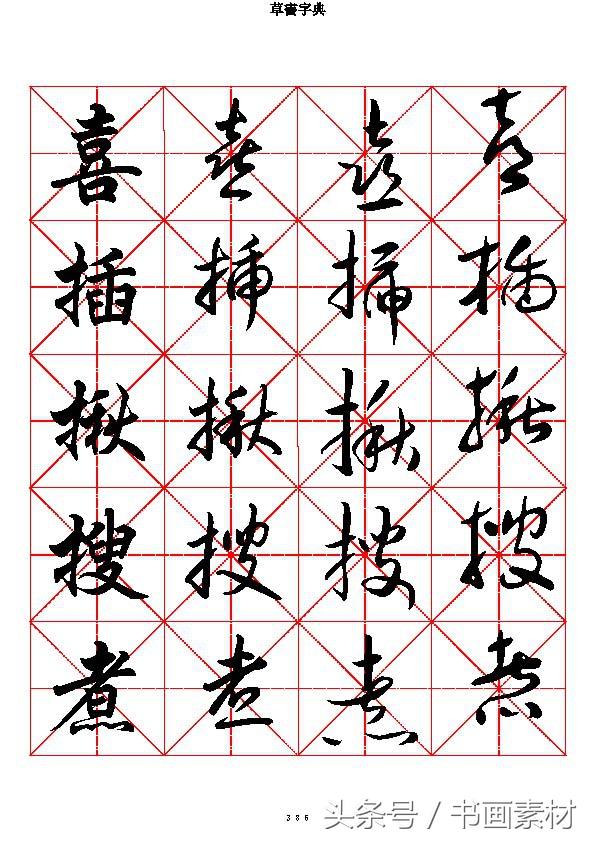 草書字典
喜喜喜喜
插插插插
揪揪揪揪
搜搜搜搜
煮煮煮煮
386
头条号/书画素材